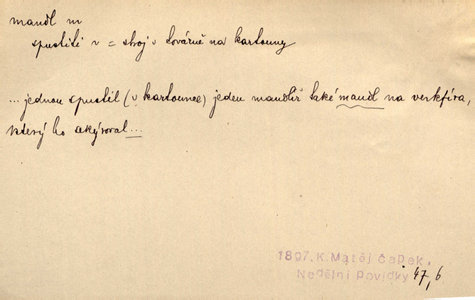 mandl m
spustiti v = stroj v továrně na kartouny
... jednou spustil (v kartounce) jeden mandlíř také mandl na verkfíra,
který ho sekýroval...
1897. K. Matěj Čapek,
Nedělní Povídky 47, 6